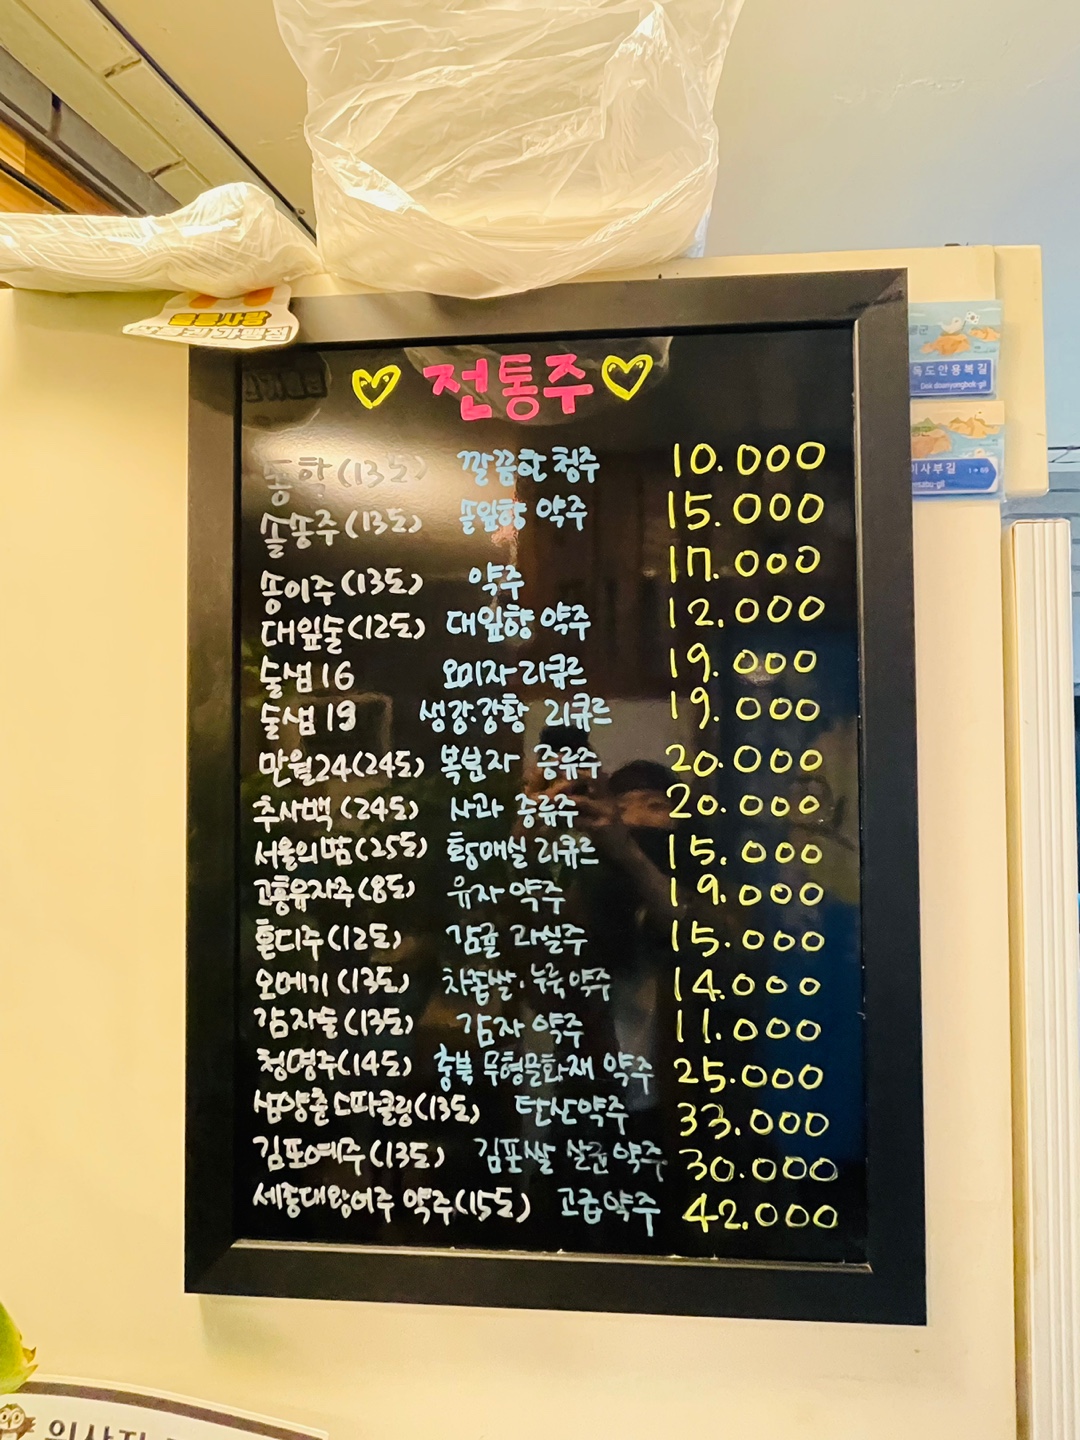 전통주
송학(13도) 깔끔한 청주 10.000
솔송주(13도) 솔잎향 약주 15.000
송이주(13도) 약주 17.000
대잎술(12도) 대잎향 약주 12.000
술샘16 오미자 리큐르 19.000
술샘19 생강.강황 리큐르 19.000
만월24(24도) 복분자 증류주 20.000
추사백(24도) 사과 증류주 20.000
서울의밤(25도) 황매실 리큐르 15.000
고흥유자주(8도) 유자 약주 19.000
혼디주(12도) 감귤 과실주 15.000
오메기(13도) 차좁쌀.누룩 약주 14.000
감자술(13도) 감자 약주 11.000
청명주(14도) 충북 무형문화재 약주 25.000
삼양춘 스파클링(13도) 탄산약주 33.000
김포예주(13도) 김포쌀 살균약주 30.000
세종대왕어주 약주(15도) 고급약주 42.000
독도안용복길
Dok doanyongbok-gil
이사부길